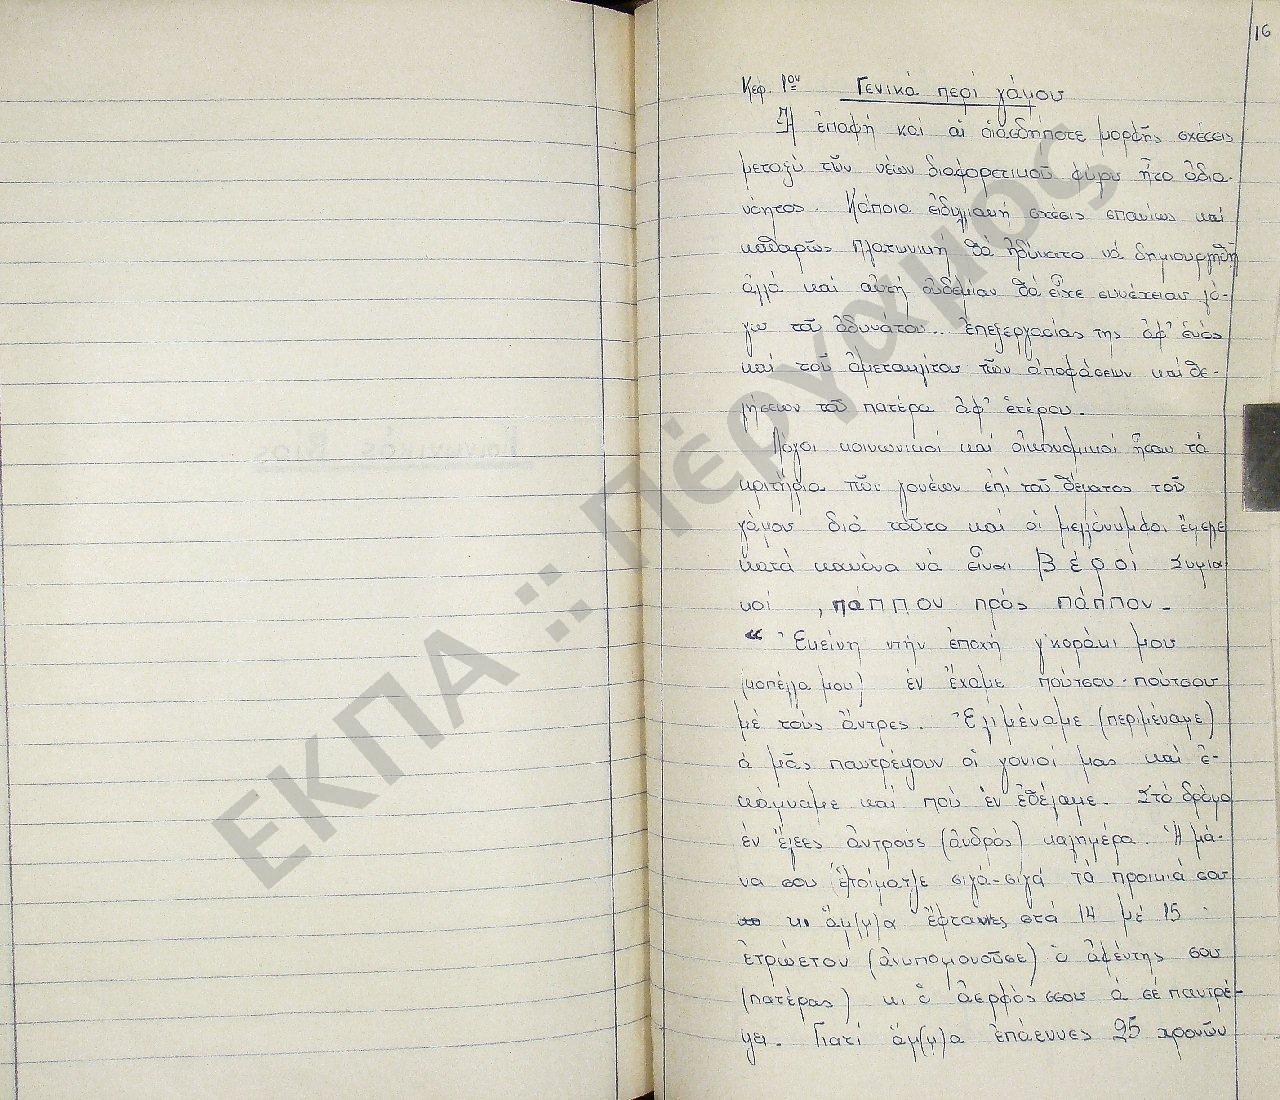 16
Κεφ. 1ον Γενικά περί γάμου
Ἡ ἐπαφή και αἱ οἱασδήποτε μορφῆς σχέσεις
μεταξύ τῶν νέων διαφορετικοῦ φύλου ἦτο ἀδια-
νόητος. Κάποια εἰδυλλιακή σχέσις σπανίως καί
καθαρῶς πλατωνική θά ἠδύνατο νά δημιουργηθῆ
ἀλλά καί αὐτή οὐδεμίαν θά εἶχε συνέχειαν λό-
γω τοῦ ἀδυνάτου.. ἐπεξεργασίας της ἀφ' ἑνός
καί τοῦ ἀμετακλήτου τῶν ἀποφάσεων καί θε-
λήσεων τοῦ πατέρα ἀφ' ἑτέρου.
Λόγοι κοινωνικοί καί οἰκονομικοί ἦσαν τά
κριτήρια τῶν γονέων ἐπί τοῦ θέματος τοῦ
γάμου διά τοῦτο καί οἱ μελλόνυμφοι ἔμελε
κατά κανόνα νά εἶναι Βέροι Συμια
κοί , πάππου πρός πάππου.
" Ἐκείνη ντήν ἐποχή γ'κοράκι μου
(κοπέλλα μου) ἐν ἔχαμε πούτσου-πούτσου
μέ τούς ἄντρες. Ἐλιμέναμε (περιμέναμε)
ἀ μᾶς παντρέψουν οἱ γονιοί μας καί ἐ-
κάμναμε καί πού ἐν ἐθέλαμε. Στό δρόμο
ἐν ἔλεες ἀντρούς (ἀνδρός) καλημέρα. Ἡ μά-
να σου ἑτοίματζε σιγά-σιγά τά προικιά σου
κι ἅμ(μ)α ἔφταννες στά 14 μέ 15
ἐτρώετον (ἀνυπομονοῦσε) ὁ ἀφέντης σου
(πατέρας) κι ὁ ἀερφός σσου ἀ σέ παντρέ-
ψει. Γιατί ἅμ(μ)α ἐπάεννες 25 χρονῶν
ΕΚΠΑ :: Πέργαμος